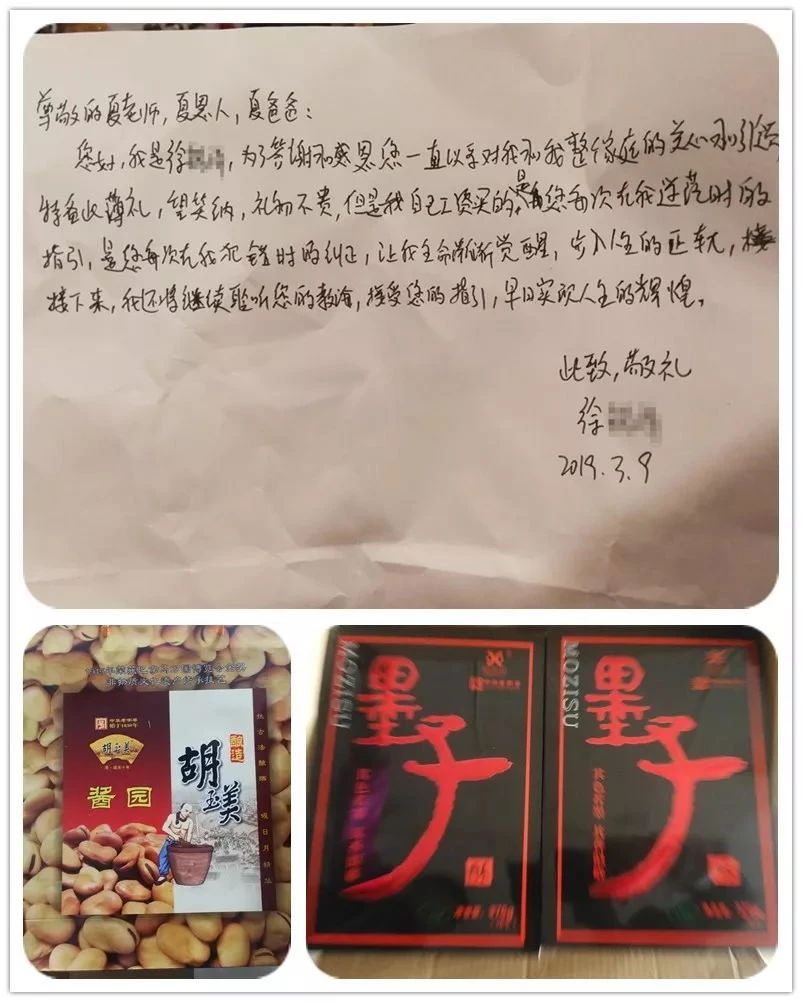 尊敬的夏老师，夏恩人，夏爸爸：
您好，我是徐，为了答谢和感恩您一直以来对我和我整个家庭的关心和引导，
特备此薄礼，望笑纳，礼物不贵，但是我自己工资买的。是您每次在我迷茫时的
指引，是您每次在我犯错时的纠正，让我生命渐渐觉醒，步入人生的正轨，
接下来，我还将继续聆听您的教诲，接受您的指引，早日实现人生的辉煌。
此致，敬礼
徐
2019.3.9
中华老字号
始于1830年
胡玉美
酱园
酿造
胡玉美
MOZISU
墨子
MOZISU
墨子